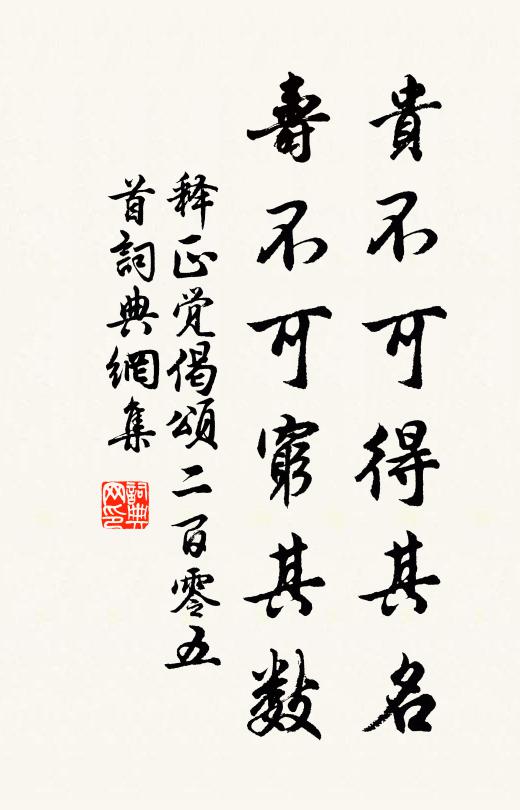 貴不可得其名
壽不可窮其数
释正觉偈頌二百零五
首詞典網集
詞典
网印